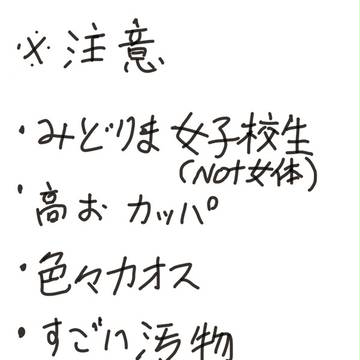 ※注意
・みどりま女子校生
(NOT女体)
・高お カッパ
・色々カオス
・すごい汚物